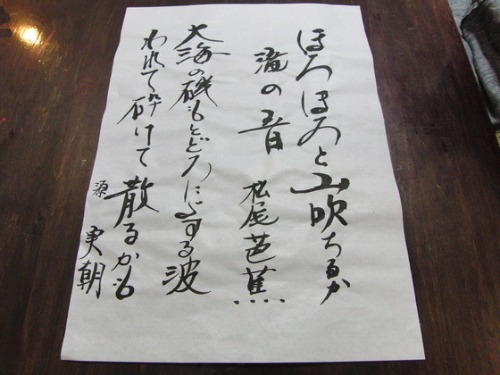 ほろほろと山吹ちるか
滝の音 松尾芭蕉
大海の磯もとどろによする波
われて砕けて散るかも
源実朝